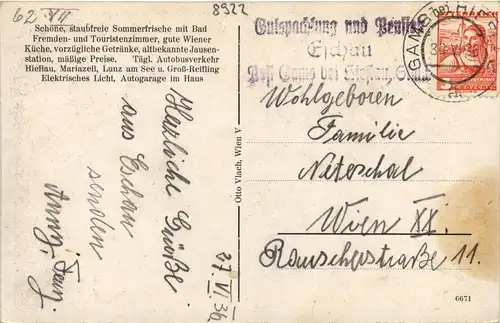 62 VII
8922
Schöne, staubfreie Sommerfrische mit Bad
Fremden- und Touristenzimmer, gute Wiener
Küche, vorzügliche Getränke, altbekannte Jausen-
station, mäßige Preise. Tägl. Autobusverkehr
Hieflau, Mariazell, Lunz am See u. Groß-Reifling
Elektrisches Licht, Autogarage im Haus
Herzliche Grüße
aus Eschau
senden
27. VI. 36
Otto Vlach, Wien V
Gutspachtung und Pension
Eschau
Post Gams bei Hieflau
GAMS bei HIEFLAU
Wohlgeboren
Familie
Wien XX.
Rauscherstraße 11.
6671